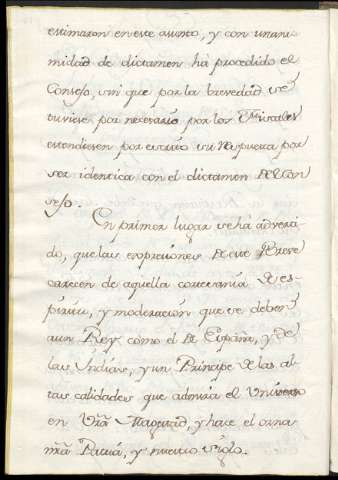 estimaron en este asunto, y con unani
midad de dictamen ha procedido el
Consejo, sin que por la brevedad se
tuviese por necesario por los Fiscales
estendiesen por escrito su respuesta por
ser identica con el dictamen del Con
sejo.
En primer lugar se há adverti
do, que las expresiones de este Breve
carecen de aquella cortesania de es-
píritu, y moderacion que se deben
á un Rey como el de España, y de
las Indias, y un Príncipe de las al-
tas calidades que admira el Universo
en Vrã. Magestad, y hace el orna
nrã. Patria, y nuestro siglo.